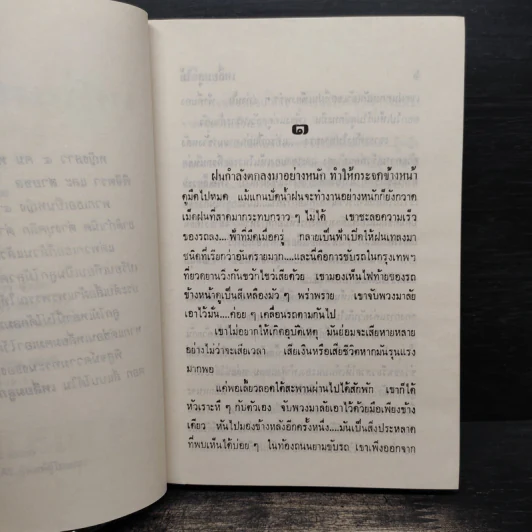 ๑
ฝนกำลังตกลงมาอย่างหนัก ทำให้กระจกข้างหน้า
ดูมืดไปหมด แม้แกนปัดน้ำฝนจะทำงานอย่างหนักก็ยังกวาด
เม็ดฝนที่สาดมากระทบกราว ๆ ไม่ได้ เขาชะลอความเร็ว
ของรถลง...ฟ้าที่มืดเมื่อครู่ กลายเป็นฟ้าเปิดให้ฝนเทลงมา
ชนิดที่เรียกว่าอันตรายมาก....และนี่คือการขับรถในกรุงเทพฯ
ที่ยวดยานวิ่งกันขวักไขว่เสียด้วย เขามองเห็นไฟท้ายของรถ
ข้างหน้าดูเป็นสีเหลืองมัว ๆ พร่าพราย เขาจับพวงมาลัย
เอาไว้มั่น...ค่อย ๆ เคลื่อนรถตามกันไป
เขาไม่อยากให้เกิดอุบัติเหตุ มันย่อมจะเสียหายหลาย
อย่างไม่ว่าจะเสียเวลา เสียเงินหรือเสียชีวิตหากมันรุนแรง
มากพอ
แต่พอเลี้ยวลอดใต้สะพานผ่านไปได้สักพัก เขาก็ได้
หัวเราะหึ ๆ กับตัวเอง จับพวงมาลัยเอาไว้ด้วยมือเพียงข้าง
เดียว หันไปมองข้างหลังอีกครั้งหนึ่ง....มันเป็นสิ่งประหลาด
ที่พบเห็นได้บ่อย ๆ ในท้องถนนยามขับรถ เขาเพิ่งออกจาก